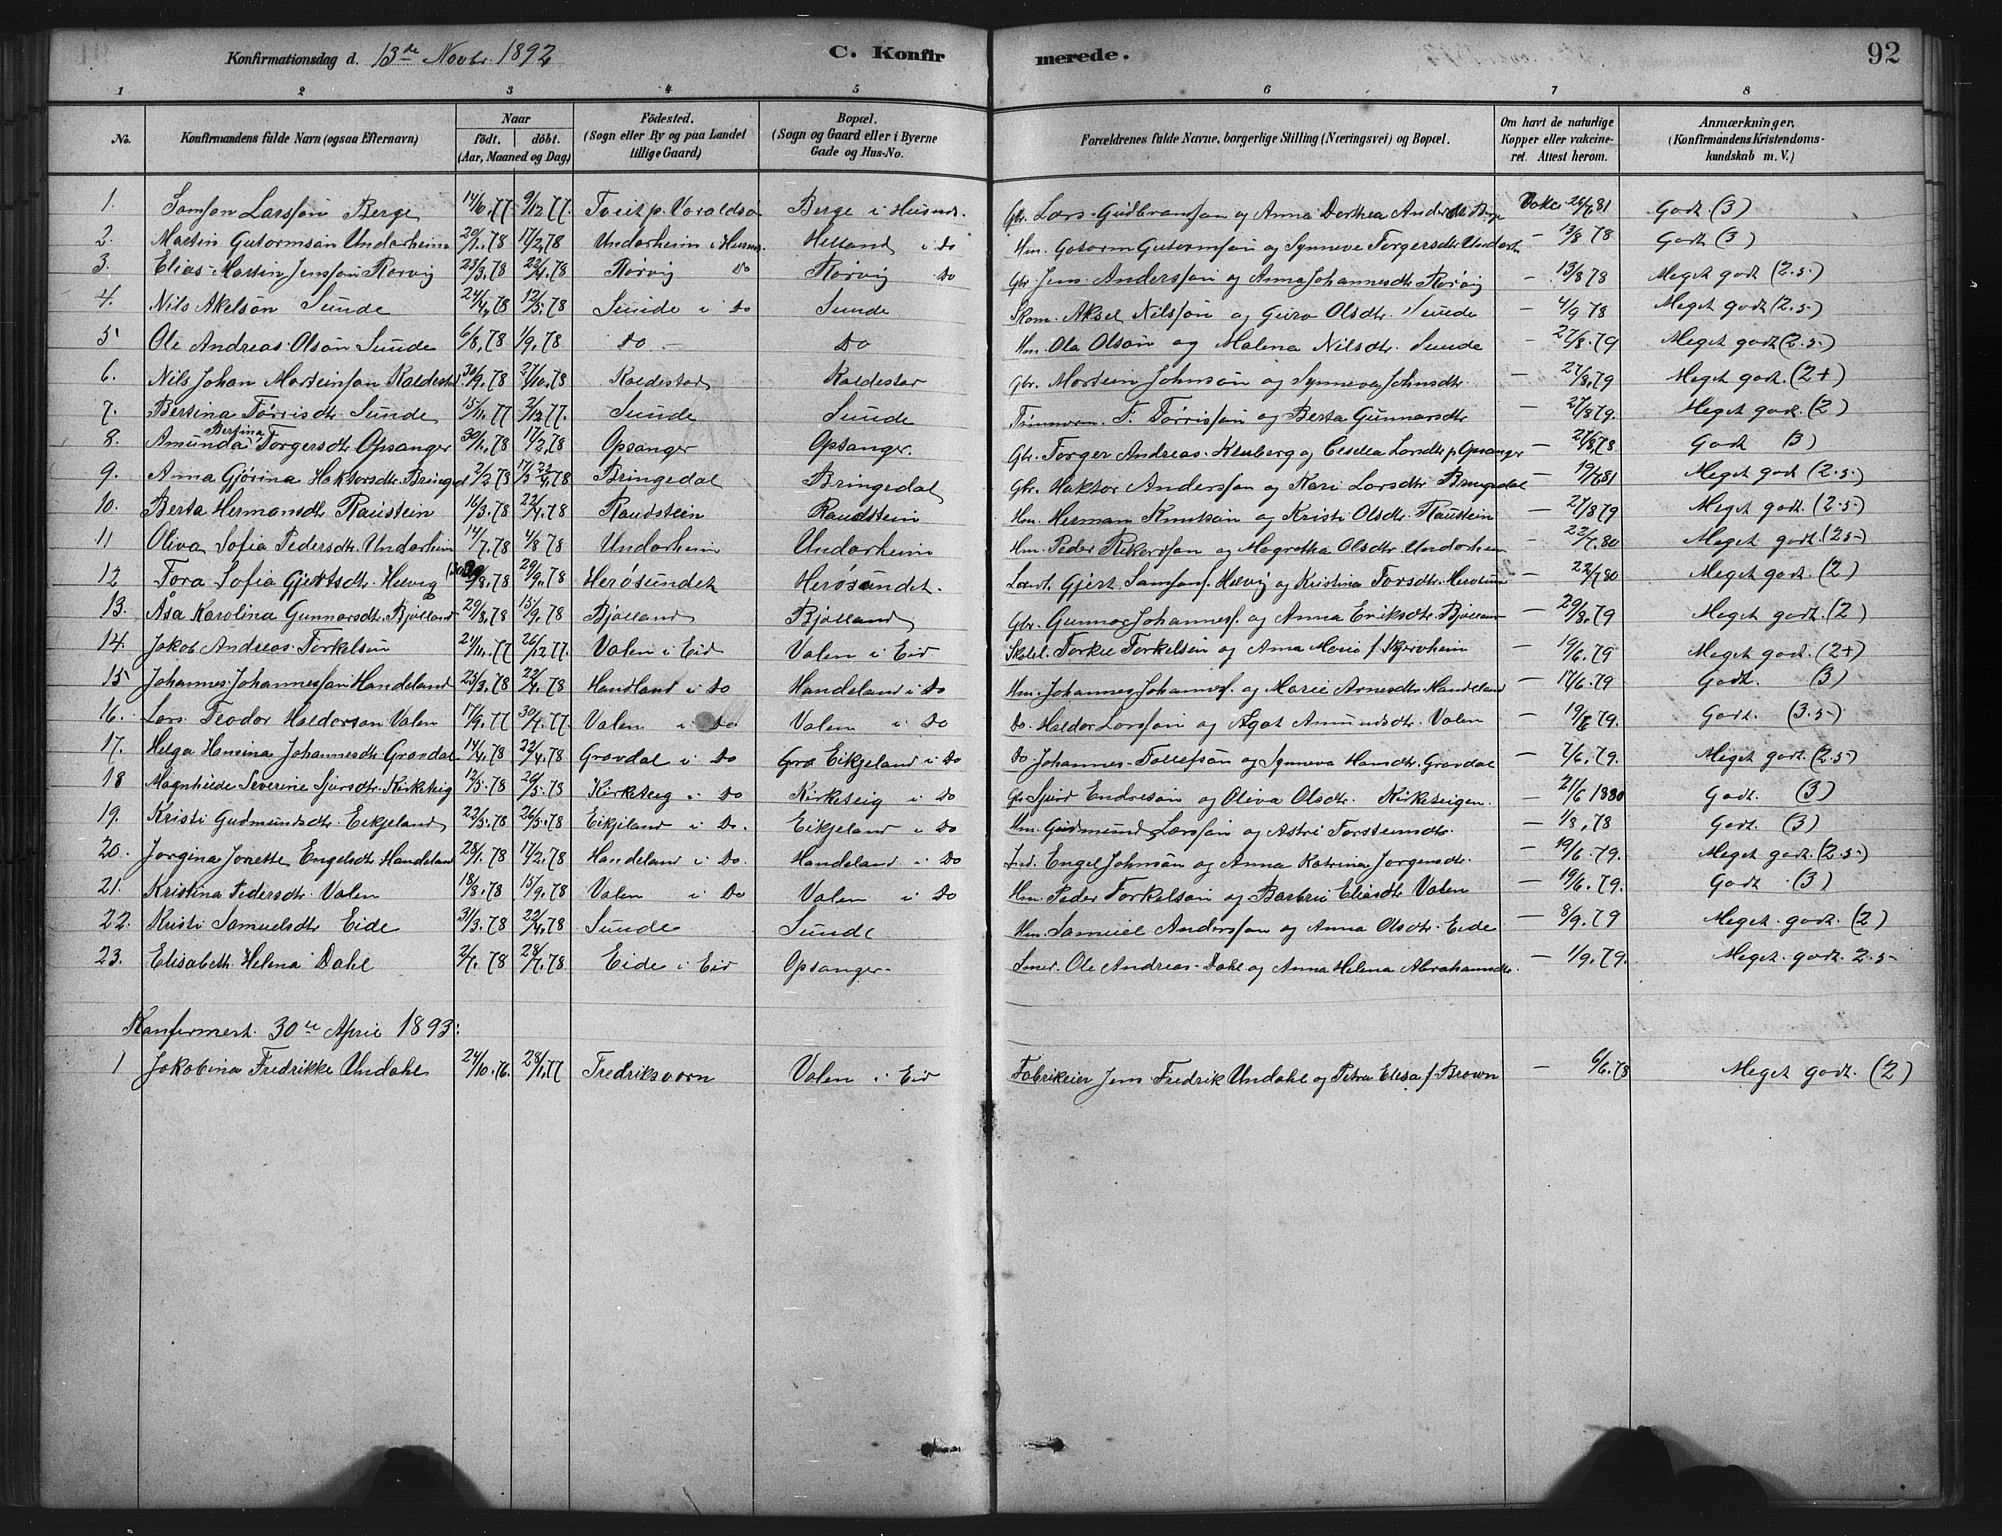 Konfirmationsdag d. 13de Novbr. 1892 C. Konfirmerede. 92
1 2 3 4 5 6 7 8
No. Konfirmandens fulde Navn (ogsaa Efternavn) Naar födt. döbt. (Aar, Maaned og Dag) Födested. (Sogn eller By og paa Landet tillige Gaard) Bopæl. (Sogn og Gaard eller i Byerne Gade og Hus-No. Forældrenes fulde Navne, borgerlige Stilling (Næringsvei) og Bopæl. Om havt de naturlige Kopper eller vakcineret. Attest herom. Anmærkninger. (Konfirmandens Kristendomskundskab m. V.)
1. Samson Larsson Berge 14/10.77 9/12 77. Tveit p. Varaldsö Berge i Husnes. Gbr. Lars Gudbransson og Anna Dorthea Andersdt. Berge Vakc. 26/7 81 Godt (3)
2. Martin Gutormsön Undarheim 20/1.78 17/2.78 Undarheim i Husnes Helland i Do Hm. Gutorm Gutormsön og Synneve Torgersdtr Undarh. — 13/8 78 Godt (3)
3. Elias Martin Jensson Rörvig 23/3.78 22/4.78 Rörvig Do Rörvig Do Gbr. Jens Andersson og Anna Johannesdtr Rörvig — 13/8 78 Meget godt (2.5)
4. Nils Akselsön Sunde 24/4.78 12/5.78 Sunde i Do Sunde Skom. Aksel Nilsson og Guro Olsdtr. Sunde — 4/9 78 Meget godt (2.5)
5 Ole Andreas Olsön Sunde 6/8.78 1/9.78 Do — Do Hm. Ola Olsön og Malena Nilsdtr. Sunde — 27/8.79 Meget godt (2.5)
6. Nils Johan Morteinson Kaldestad 30/9.78 27/10.78 Kaldestad Kaldestad Gbr. Mortein Johnsön og Synneva Johnsdtr — 27/8.79 Meget godt. (2+)
7. Bertina Törrisdtr. Sunde 15/11.77 2/12 77. Sunde Sunde T. Törrisson og Berta Gunnarsdtr — 27/8 79. Meget godt. (2)
8. Amunda Bertina Torgersdtr Opsanger 30/1.78 17/2.78 Opsanger Opsanger. Gbr. Torger Andreas og Larsdtr p. Opsanger — 27/8.78 Godt (3)
9. Anna Gjörina Haktorsdtr. Bringedal 2/2 78 Bringedal Bringedal Gbr. Haktor Andersson og Kari Larsdtr Bringedal — 19/6 81 Meget godt (2.5)
10. Berta Hermansdtr Raustein 16/3.78 22/4.78 Raudstein Raudstein Hm. Herman Knutsön og Kristi Olsdtr. Raustein — 27/8 79 Meget godt (2.5)
11 Oliva Sofia Pedersdtr. Undarheim 14/7.78 4/8 78 Undarheim Undarheim Hm. Peder Rikardson og Magretha Olsdtr Undarheim — 22/7.80 Meget godt. (2.5)
12 Tora Sofia Gjertsdtr. Helvig 29/9.78 Herösundet Herösundet. Gjert Samsons. Helvig og Kristina Torsdtr. Herösund — 22/7 80 Meget godt. (2)
13. Åsa Karolina Gunnarsdtr. Bjölland 29/8.78 15/9.78 Bjölland Bjölland Gbr. Gunnar Johanness. og Anna Eriksdtr. Bjölland — 29/8.79 Meget godt. (2)
14. Jakob Andreas Torkelsen 24/11.77 26/12 77. Valen i Eid Valen i Eid Torkel Torkelsen og Anna Marie f. Skjervheim — 19/6.79 Meget godt. (2+)
15 Johannes Johannesson Handeland 23/3.78 22/4.78 Handland i Do Handeland i Do Hm. Johannes Johanness. og Marie Arnesdtr. Handeland — 17/6.79 Godt. (3)
16. Lars Teodor Haldorson Valen 17/9.77 30/9.77 Valen i Do Valen i Do Do. Haldor Larsson og Agat Amundsdtr. Valen — 19/6 79. Godt. (3.5)
17. Helga Hansina Johannesdtr Gravdal 14/4.78 22/4.78 Gravdal i Do Gra Eikjeland i Do Do Johannes Tollefsön og Synneva Hansdtr. Gravdal — 7/6.79. Meget godt. (2.5)
18 Magnhilde Severine Sjursdtr. Kirketeig 12/5.78 26/5.78 Kirketeig i Do Kirketeig i Do Gbr Sjurd Endresön og Oliva Olsdtr. Kirketeigen. — 21/6 1880 Godt. (3)
19. Kristi Gudmundsdtr. Eikjeland 22/5.78 26/5.78 Eikjeland i Do. Eikjeland i Do Hm. Gudmund Larsson og Astri Torsteinsdtr. — 1/8.78 Godt. (3)
20. Jorgina Jonette Engelsdtr Handeland 28/1.78 17/2.78 Handeland i Do. Handeland i Do Ind. Engel Johnsön og Anna Katrina Jorgensdtr. — 19/6.79. Meget godt. (2.5)
21. Kristina Pedersdtr. Valen 18/8.78 15/9.78 Valen i Do Valen i Do Hm. Peder Torkelson og Barbru Eliasdtr Valen — 19/6.79. Godt (3)
22. Kristi Samuelsdtr Eide 31/3.78 22/4.78 Sunde Sunde Hm. Samuel Andersson og Anna Olsdtr. Eide — 8/9.79 Meget godt. (2)
23. Elisabeth Helena Dahl 2/7.78 28/7.78. Eide i Eid Opsanger. Smed. Ole Andreas Dahl og Anna Helena Abrahamsdtr. — 1/9.79. Meget godt. 2.5
Konfirmert. 30te April 1893:
1 Jakobina Fredrikke Undahl 24/10.76. 28/1.77 Fredriksværn Valen i Eid Fabrikeier Jens Fredrik Undahl og Petra Elisa f. Brown — 6/6.78 Meget godt. (2)